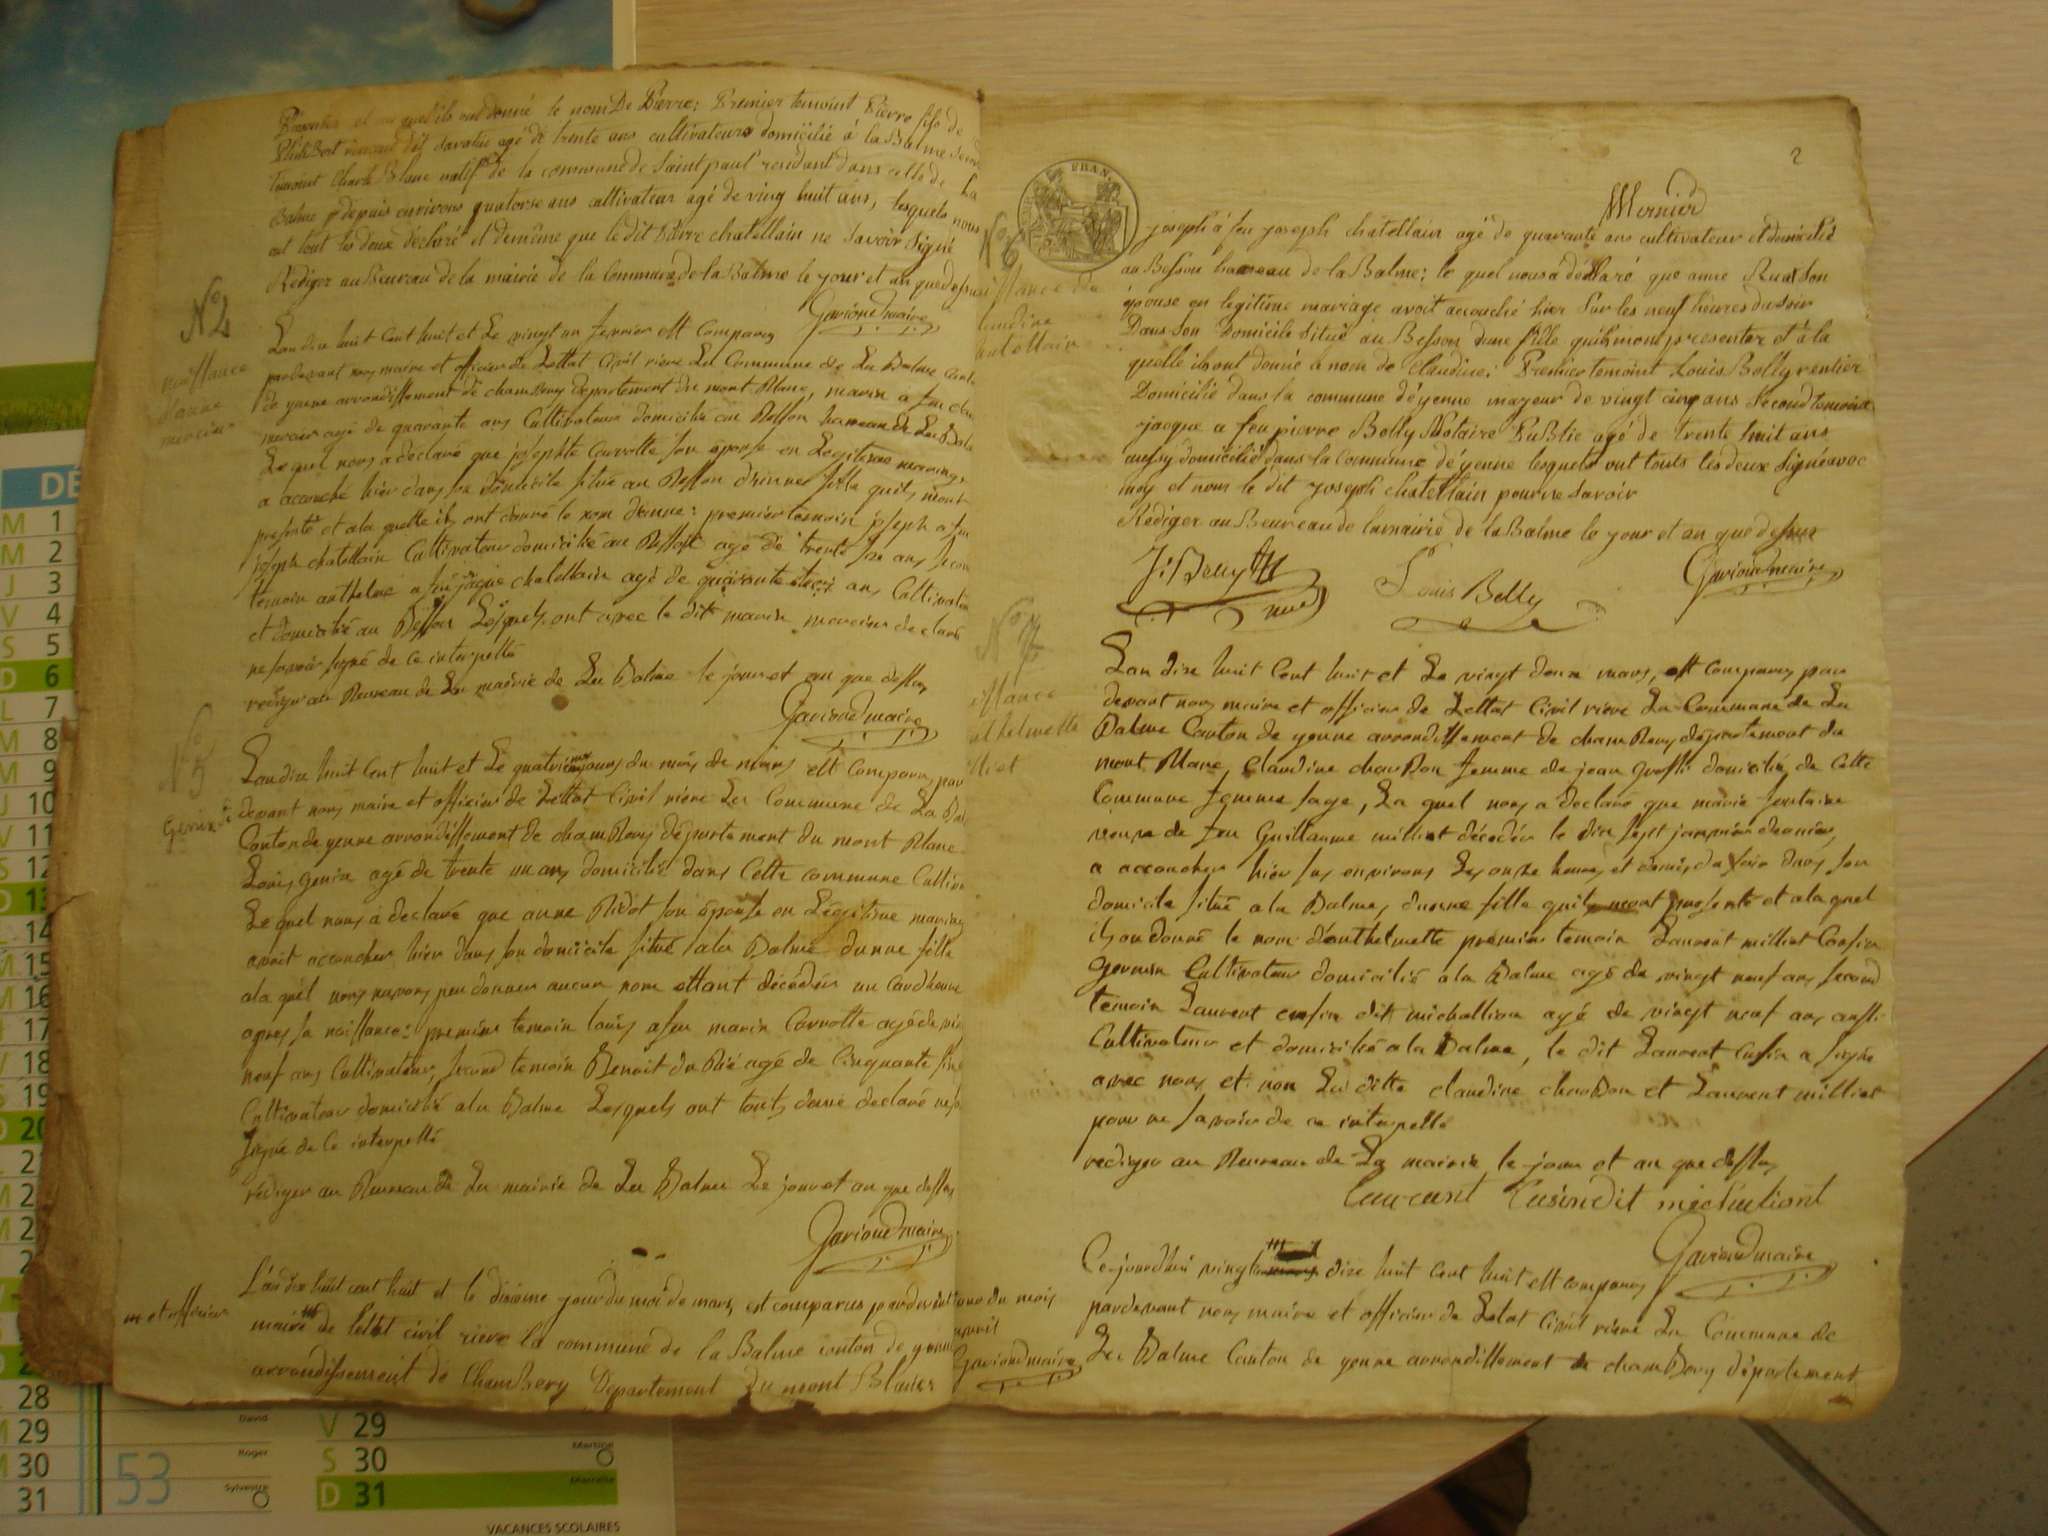 et auquel ils ont donné le nom De Pierre; Premier temoint Pierre fils de
Philibert dit Savatin agé de trente ans cultivateur domicilié à la Balme Second
temoint Charle Blanc natif de la commune de Saint paul residant dans celle de La
Balme depuis environs quatorse ans cultivateur agé de ving huit ans, lesquels nous
ont tout les deux declaré et demême que le dit Pierre chatellain ne Savoir Signé
Rediger au Beureau de la mairie de la Commune de la Balme le jour et an que dessus
Gavioud maire
No 4
naissance
danne
mercier
Lan dix huit Cent huit et Le vingt un fevrier est Comparu
pardevant nous maire et officier de Lettat Civil riere La Commune de La Balme Canton
de yenne arrondissement de chamBery departement du mont Blanc, marin a feu
mercier agé de quarante ans Cultivateur domicilié au Besson hameau de La Balme
Lequel nous a declaré que josephte Carrotte son eponse en Legitime mariage
a accouché hier dans son domicile situé au Besson d'unne fille quils mont
presenté et ala quelle ils ont donné le nom d'anne: premier temoin joseph a feu
joseph chatellain Cultivateur domicilié au Besson agé de trente six ans Second
temoin anthelme a feu jaque chatellain agé de quarante trois ans Cultivateur
et domicilié au Besson Lesquels ont avec le dit marin mercier declaré
ne savoir signé de ce interpellé
rediger au Beureau de La mairie de La Balme le jour et an que dessus
Gavioud maire
No 5
Genin
Lan dix huit Cent huit et Le quatrieme jours du mois de mars est Comparu par
devant nous maire et officier de Lettat Civil riere La Commune de La Bal
Canton de yenne arrondissement de chamBery departement du mont Blanc
Louis genin agé de trente un ans domicilié dans Cette commune Cultiva
Lequel nous a declaré que anne Bidot son éponse en Légitime mariage
avoit accoucher hier dans son domicile situé ala Balme dunne fille
ala quel nous navons peu donner aucun nom ettant décédée un Card'heure
apres sa naissance: premier temoin louis a feu marin Carrotte agé de vin
neuf ans Cultivateur, Second temoin Benoit du Pié agé de Cinquante
Cultivateur domicilié ala Balme Lesquels ont touts deux declaré ne
signé de Ce interpellé
rediger au Beureau de La mairie de La Balme Le jour et an que dessus
Gavioud maire
m et officier
L'an dix huit cent huit et le dixieme jour du moi de mars, est comparus pardevant
maire de l'ettat civil riere la commune de la Balme canton de yenne
arrondissement de ChamBery Departement Du mont Blanc
du mois
Gavioud maire
2
Mernier
No 6
issance de
audine
atellain
joseph à feu joseph chatellain agé de quarante ans cultivateur et domicilié
au Besson hameau de la Balme; le quel nous a déclaré que anne Rualson
épouse en legitime mariage avoit accouché hier Sur les neuf heures du soir
Dans Son Domicile Situé au Besson dune fille quils mont presenter et à la
quelle ils ont donné le nom de Claudine; Premier temoint Louis Belly rentier
Domicilié dans la commune d'éyenne mageur de vingt cinq ans Second temoint
jacque a feu pierre Belly Notaire PuBlic agé de trente huit ans
aussy domicilié dans la Commune d'éyenne lesquels ont touts les deux Signé avec
moy et nom le dit joseph chatellain pour ne Savoir
Rediger au Beureau de la mairie de la Balme le jour et an que dessus
J: Belly
Louis Belly
Gavioud maire
No 7
issance
thelmette
lliet
Lan dix huit Cent huit et Le vingt deux mars, est Comparu par
devant nous maire et officier de Lettat Civil riere La Commune de La
Balme Canton de yenne arrondissement de chamBery departement du
mont Blanc, Claudine charBon femme de jean domiciliée de Cette
Commune femme sage, La quel nous a declaré que marie fontaine
veuve de feu Guillaume milliet décédée le dix sept janvier dernier,
a accoucher hier sus environs Les onze heures et demis du soir dans son
domicile situé ala Balme, dunne fille quils mont presenté et ala quel
ils on donné le nom d'anthelmette premier temoin Laurent milliet Cousin
germin Cultivateur domicilié ala Balme agé de vingt neuf ans second
temoin Laurent cusin dit michallion agé de vingt neuf ans aussi
Cultivateur et domicilié ala Balme, le dit Laurent Cusin a signé
avec nous et non La ditte claudine charBon et Laurent milliet
pour ne savoir de ce interpellé
rediger au Beureau de La mairie le jour et an que dessus
Laurant Cusin dit michalliont
Gavioud maire
Ce jourdhui vingt dix huit Cent huit est comparu
pardevant nous maire et officier de Letat Civil riere La Commune de
La Balme Canton de yenne arrondissement de chamBery département
DÉ
M 1
M 2
J 3
V 4
S 5
D 6
L 7
M 8
M 9
J 10
V 11
S 12
D 13
L 14
M 15
M 16
J 17
V 18
S 19
D 20
28
29
30
31
53
David
Roger
Sylvestre
V 29
S 30
D 31
Martine
Marcelle
VACANCES SCOLAIRES